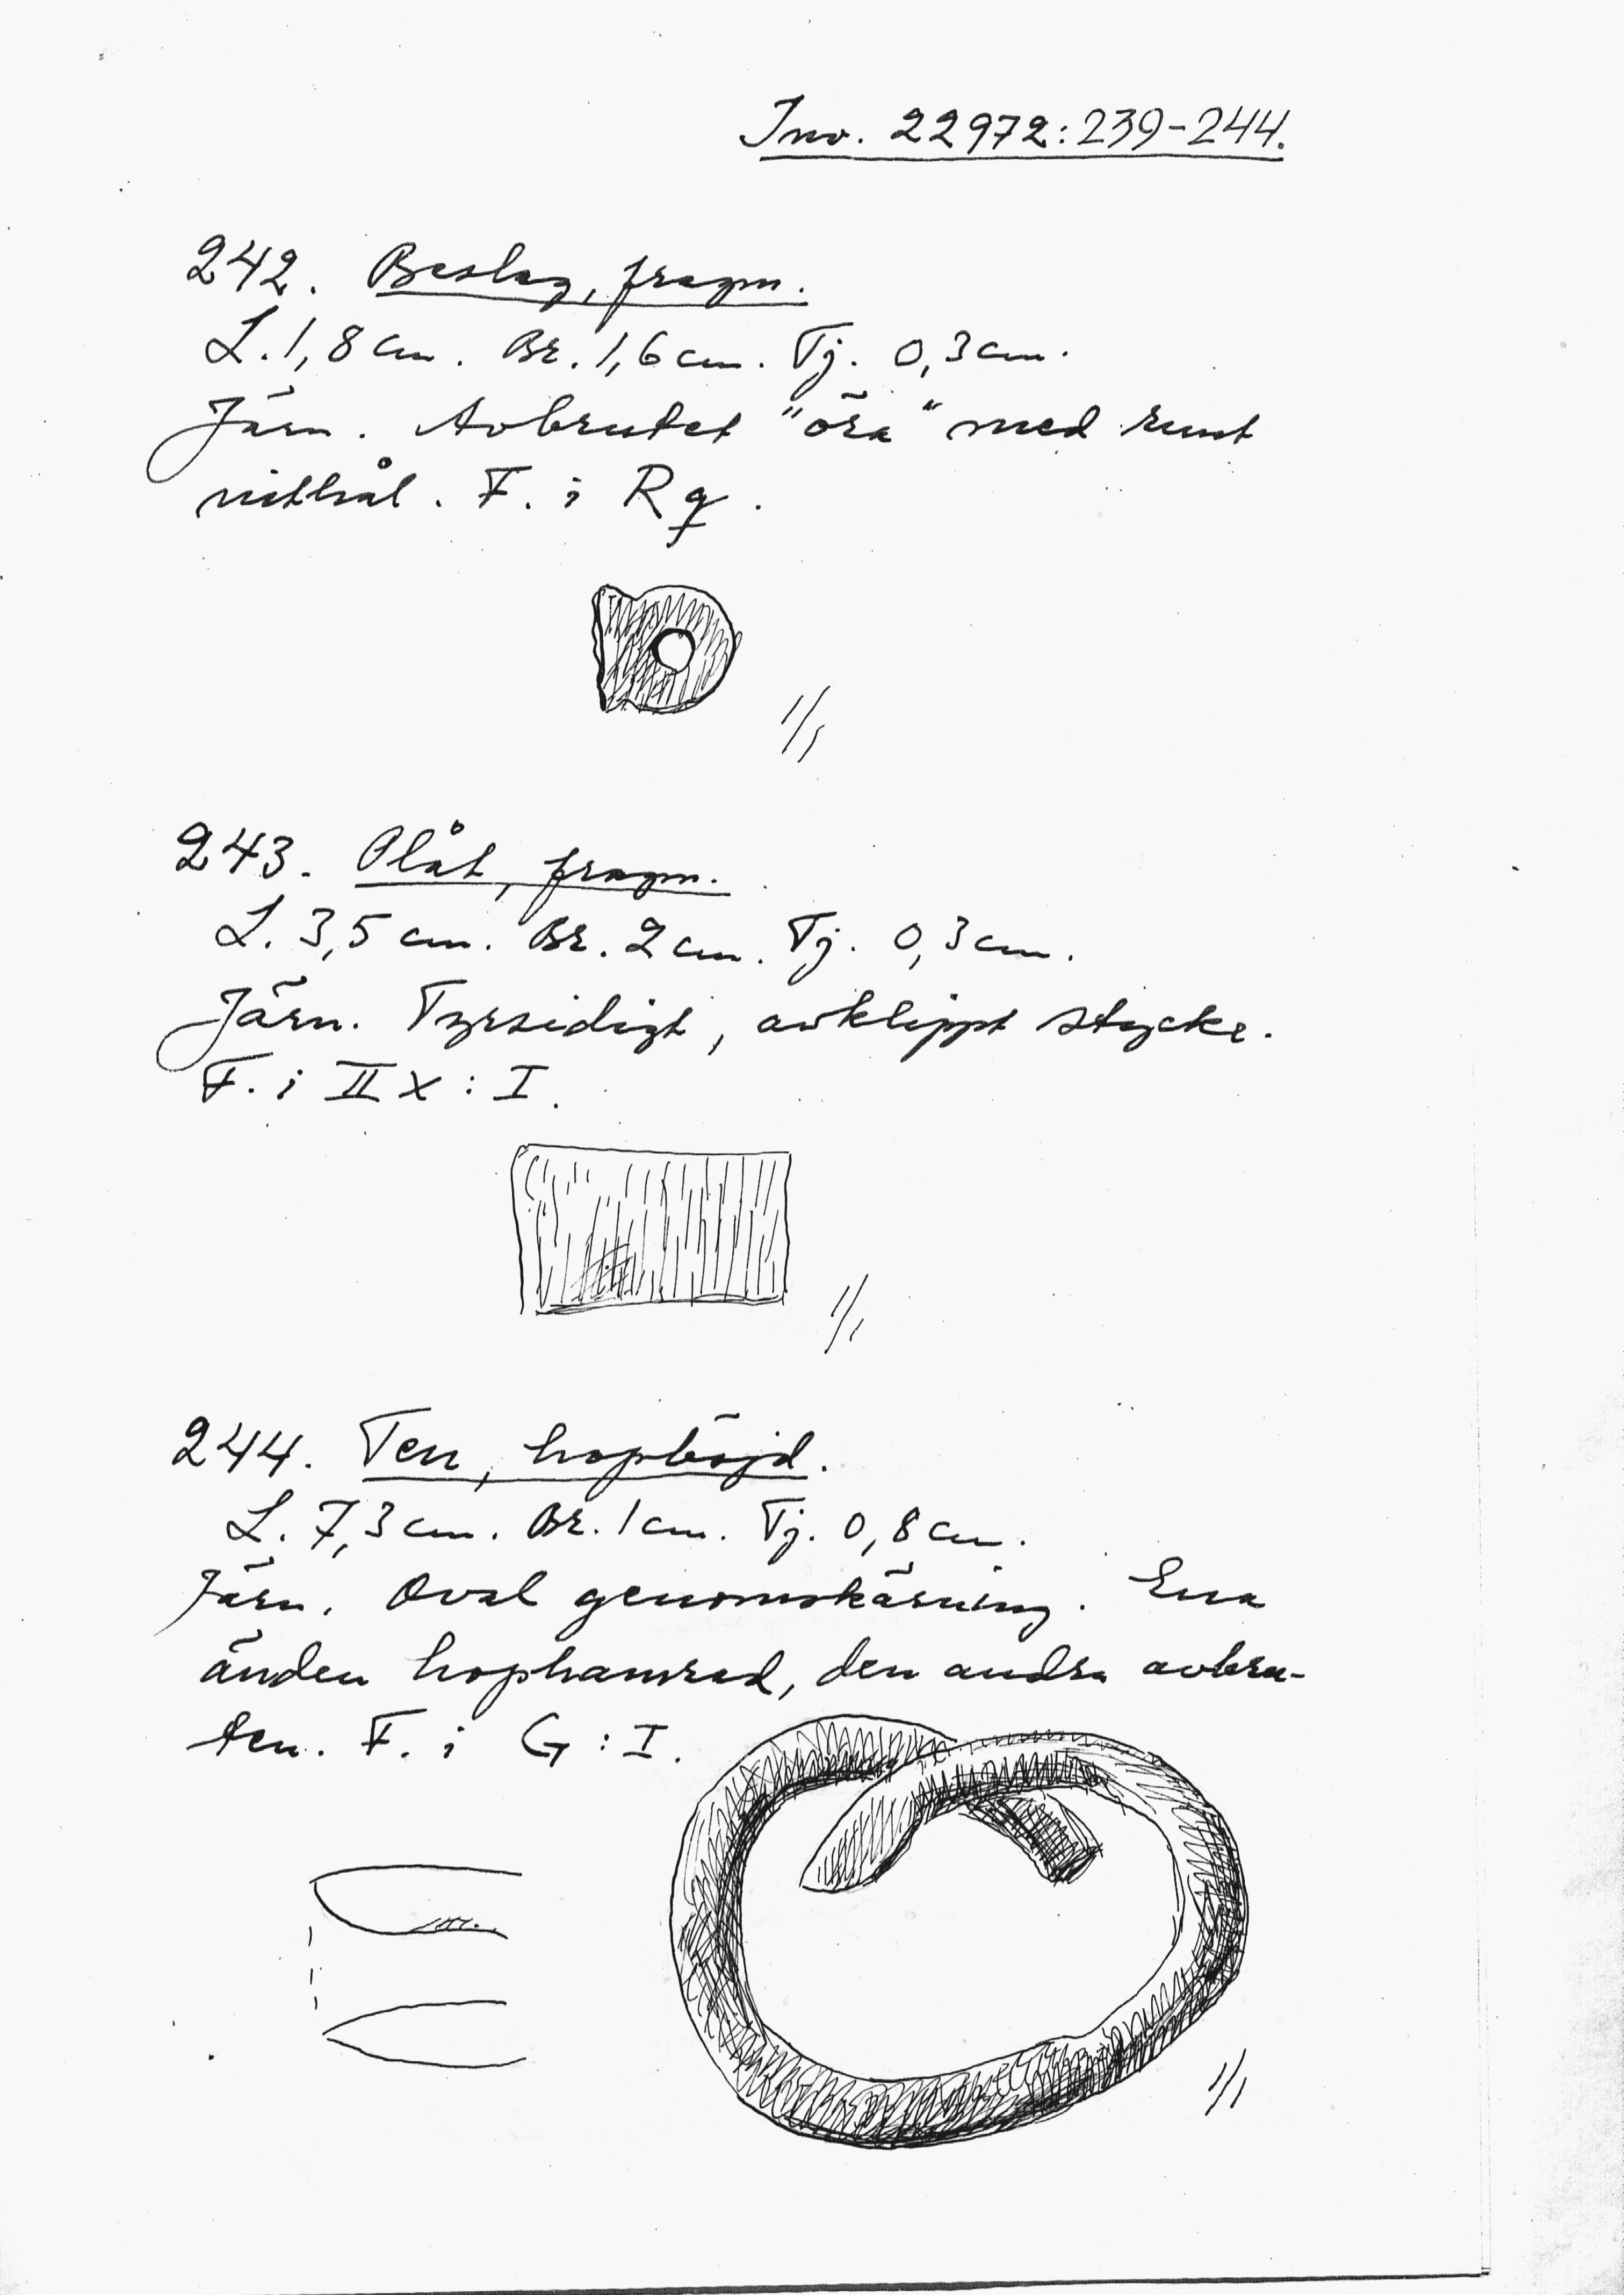 Inv. 22972:239-244.
242. Beslag, fragm.
L. 1,8 cm. Br. 1,6 cm. Tj. 0,3 cm.
Järn. Avbrutet "öra" med runt
nithål. F. i Rq.
1/1
243. Plåt, fragm.
L. 3,5 cm. Br. 2 cm. Tj. 0,3 cm.
Järn. Fyrsidigt, avklippt stycke.
F. i II X : I.
1/1
244. Ten, hopböjd.
L. 7,3 cm. Br. 1 cm. Tj. 0,8 cm.
Järn. Oval genomskärning. Ena
änden hophamrad, den andra avbru-
ten. F. i G : I.
1/1